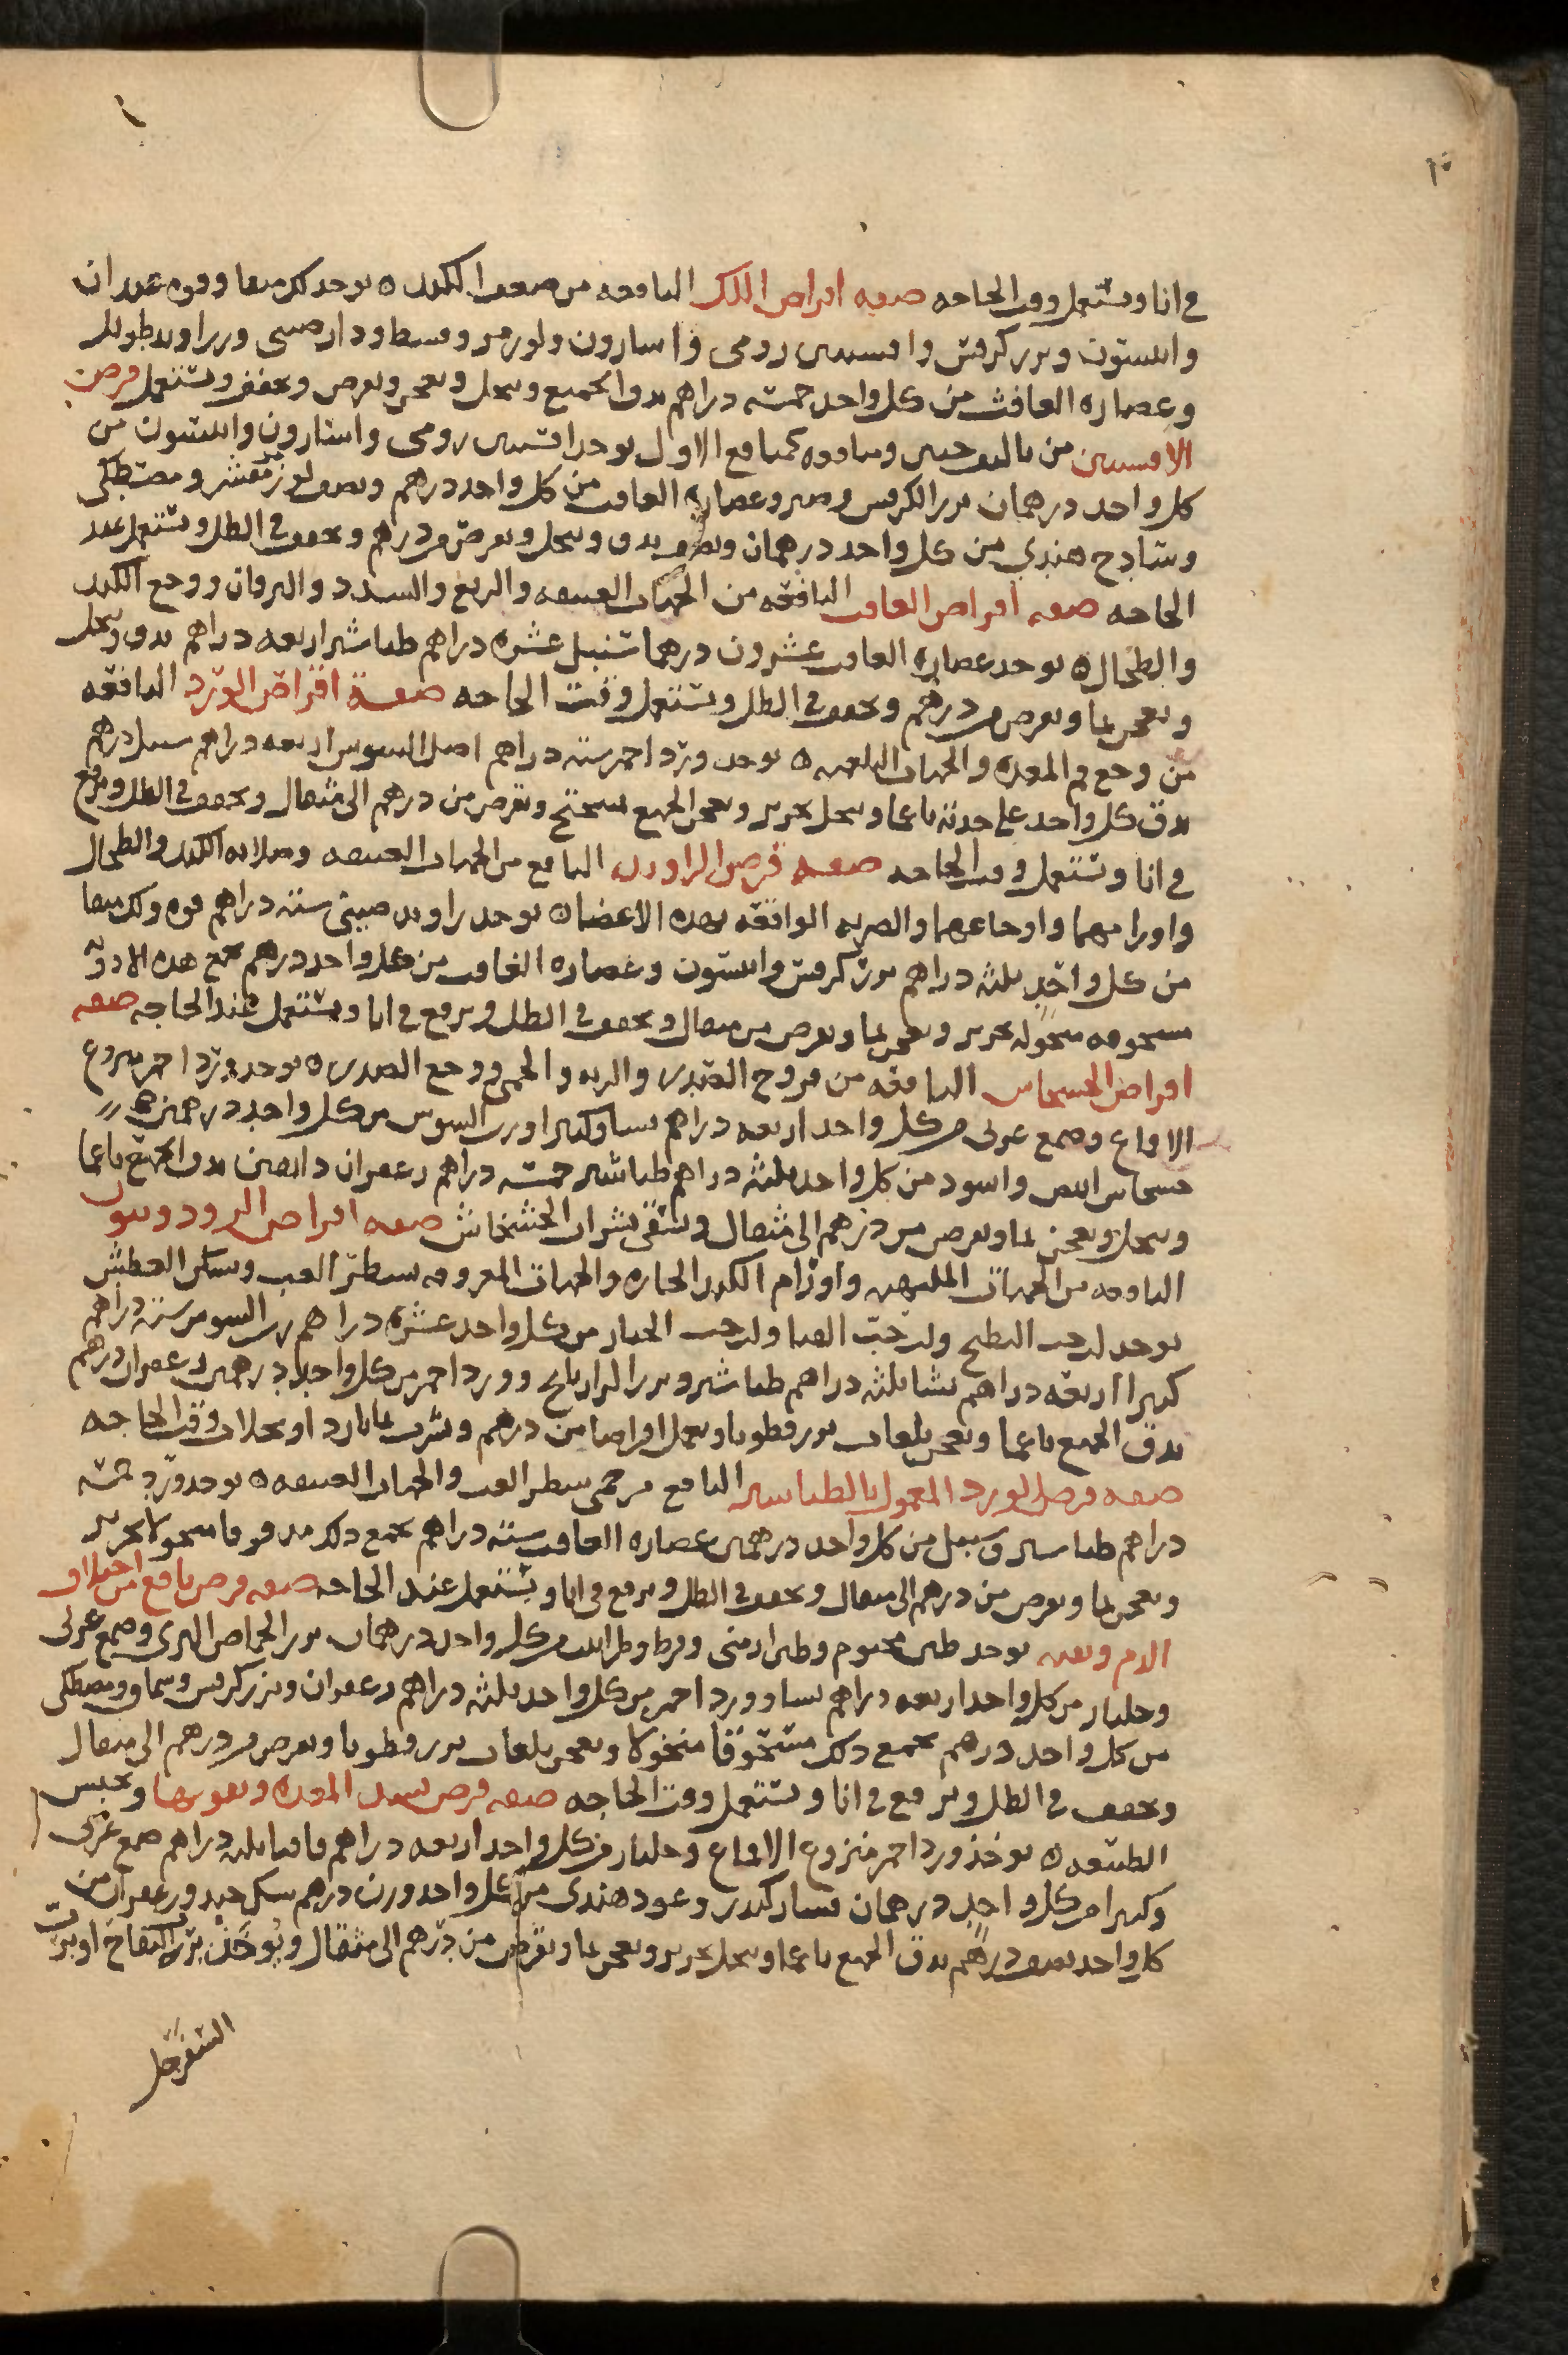 ١٠
في انا ويستعمل وقت الحاجه صفه اقراص اللك النافعه من ضعف الكبد ه يوخذ لك منقا وفوه عيدان
وانيسون وبزر كرفس وافسنتين رومي واسارون ولوز مر وقسط ودارصيني وزراوند طويل
وعصاره الغافث من كل واحد خمسه دراهم يدق الجميع وينخل ويعجن ويقرص ويجفف ويستعمل قرص
الافسنتين من تاليف حبيش ومنافعه كمنافع الاول يوخذ افسنتين رومي واسارون وانيسون من
كل واحد درهمان بزر الكرفس وصبر وعصاره الغافت من كل واحد درهم ونصف لوز مر مقشر ومصطكي
وسادج هندي من كل واحد درهمان ونصف يدق وينخل ويقرص من درهم ويجفف في الظل ويستعمل عند
الحاجه صفه اقراص الغافت النافعه من الحميات العتيقه والربع والسدد واليرقان ووجع الكبد
والطحال ه يوخذ عصاره الغافت عشرون درهما سنبل عشره دراهم طباشير اربعه دراهم يدق وينخل
ويعجن بما ويقرص من درهم ويجفف في الظل ويستعمل وقت الحاجه صفة اقراص الورد النافعه
من وجع فم المعده والحميات البلغميه ه يوخذ ورد احمر سته دراهم اصل السوس اربعه دراهم سنبل درهم
يدق كل واحد على حدته ناعما وينخل بحرير ويعجن الجميع بميبختج ويقرص من درهم الى مثقال ويجفف في الظل ويرفع
في انا ويستعمل وقت الحاجه صفه قرص الراوند النافع من الحميات العتيقه وصلابه الكبد والطحال
واورامهما واوجاعهما والضربه الواقعه بهذه الاعضا ه يوخذ راوند صيني سته دراهم فوه ولك منقا
من كل واحد ثلثه دراهم بزر كرفس وانيسون وعصاره الغافت من كل واحد درهم تجمع هذه الادويه
مسحوقه منخوله بحرير وتعجن بما ويقرص من مثقال ويجفف في الظل ويرفع في انا ويستعمل عند الحاجه صفه
اقراص الخشخاش النافعه من قروح الصدر والريه والحمى ووجع الصدر ه يوخذ ورد احمر منزوع
الاقماع وصمغ عربي من كل واحد اربعه دراهم نشا وكثيرا ورب السوس من كل واحد درهمين
خشخاش ابيض واسود من كل واحد ثلثه دراهم طباشير خمسه دراهم زعفران دانقين يدق الجميع ناعما
وينخل ويعجن بما ويقرص من درهم الى مثقال ويسقى بشراب الخشخاش صفه اقراص البرود
النافعه من الحميات الملتهبه واورام الكبد الحاره والحميات المعروفه بشطر الغب وتسكن العطش
يوخذ لب حب البطيخ ولب حب القثا ولب حب الخيار من كل واحد عشره دراهم رب السوس سته دراهم
كثيرا اربعه دراهم نشا ثلثه دراهم طباشير وبزر الرازيانج وورد احمر من كل واحد درهمين زعفران درهم
يدق الجميع ناعما ويعجن بلعاب بزر قطونا ويعمل اقراصا من درهم ويشرب بما بارد او بجلاب وقت الحاجه
صفه قرص الورد المعمول بالطباشير النافع من حمى شطر الغب والحميات العتيقه ه يوخذ ورد خمسه
دراهم طباشير وسنبل من كل واحد درهمين عصاره الغافت سته دراهم يجمع ذلك مدقوقا منخولا بحرير
ويعجن بما ويقرص من درهم الى مثقال ويجفف في الظل ويرفع في انا ويستعمل عند الحاجه صفه قرص نافع من اختلاف
الدم وقيه يوخذ طين مختوم وطين ارمني وقرط وطراثيث من كل واحد درهمان بزر الحماض البري وصمغ عربي
وجلنار من كل واحد اربعه دراهم نشا وورد احمر من كل واحد ثلثه دراهم زعفران وبزر كرفس وسماق ومصطكي
من كل واحد درهم يجمع ذلك مسحوقا منخولا ويعجن بلعاب بزر قطونا ويقرص من درهم الى مثقال
ويجفف في الظل ويرفع في انا ويستعمل وقت الحاجه صفه قرص يشد المعده ويقويها ويحبس
الطبيعه ه يوخذ ورد احمر منزوع الاقماع وجلنار من كل واحد اربعه دراهم قاقيا ثلثه دراهم صمغ عربي
وكثيرا من كل واحد درهمان قشار كندر وعود هندي من كل واحد وزن درهم سك جيد وزعفران من
كل واحد نصف درهم يدق الجميع ناعما وينخل بحرير ويعجن بما ويقرص من درهم الى مثقال ويوخذ برب التفاح او برب
السفرجل